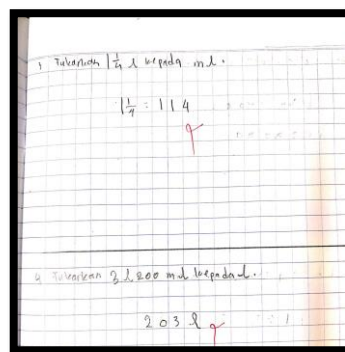 1 Tukarkan 1 1/4 l kepada ml.
1 1/4 = 114
Tukarkan 3 l 200 ml kepada l.
203 l